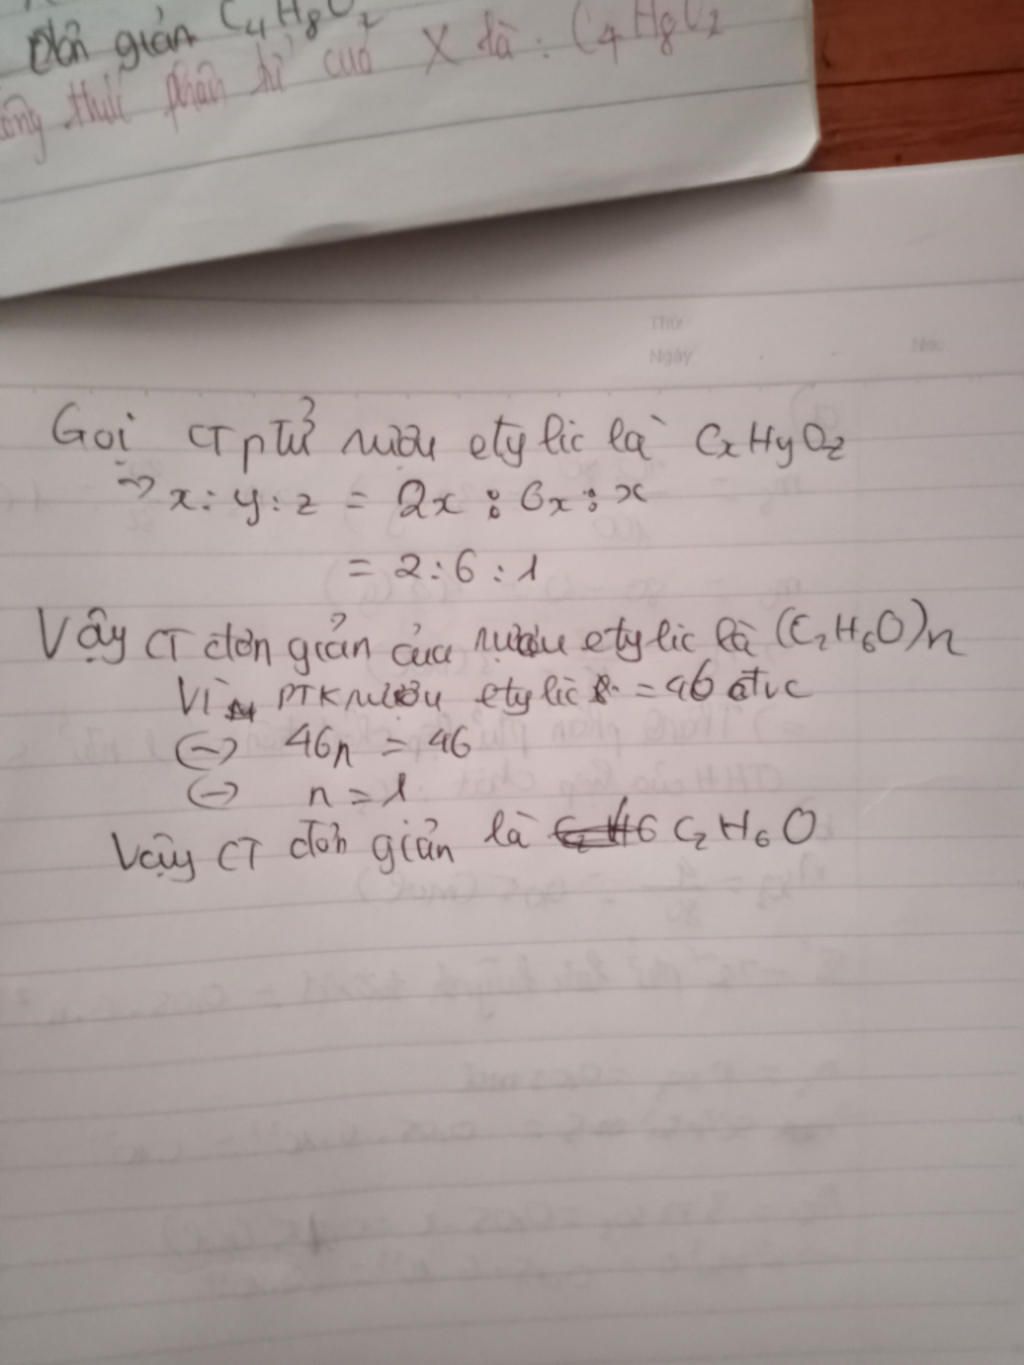 Đơn giản C₄H₈O₂
công thức phân tử của X là : C₄H₈O₂
Thứ
Ngày No.
Gọi CT ptử rượu etylic là CxHyOz
=> x : y : z = 2x : 6x : x
= 2 : 6 : 1
Vậy CT đơn giản của rượu etylic là (C₂H₆O)n
Vì PTK rượu etylic = 46 đtvc
(-> 46n = 46
(-> n = 1
Vậy CT đơn giản là C₂H₆O